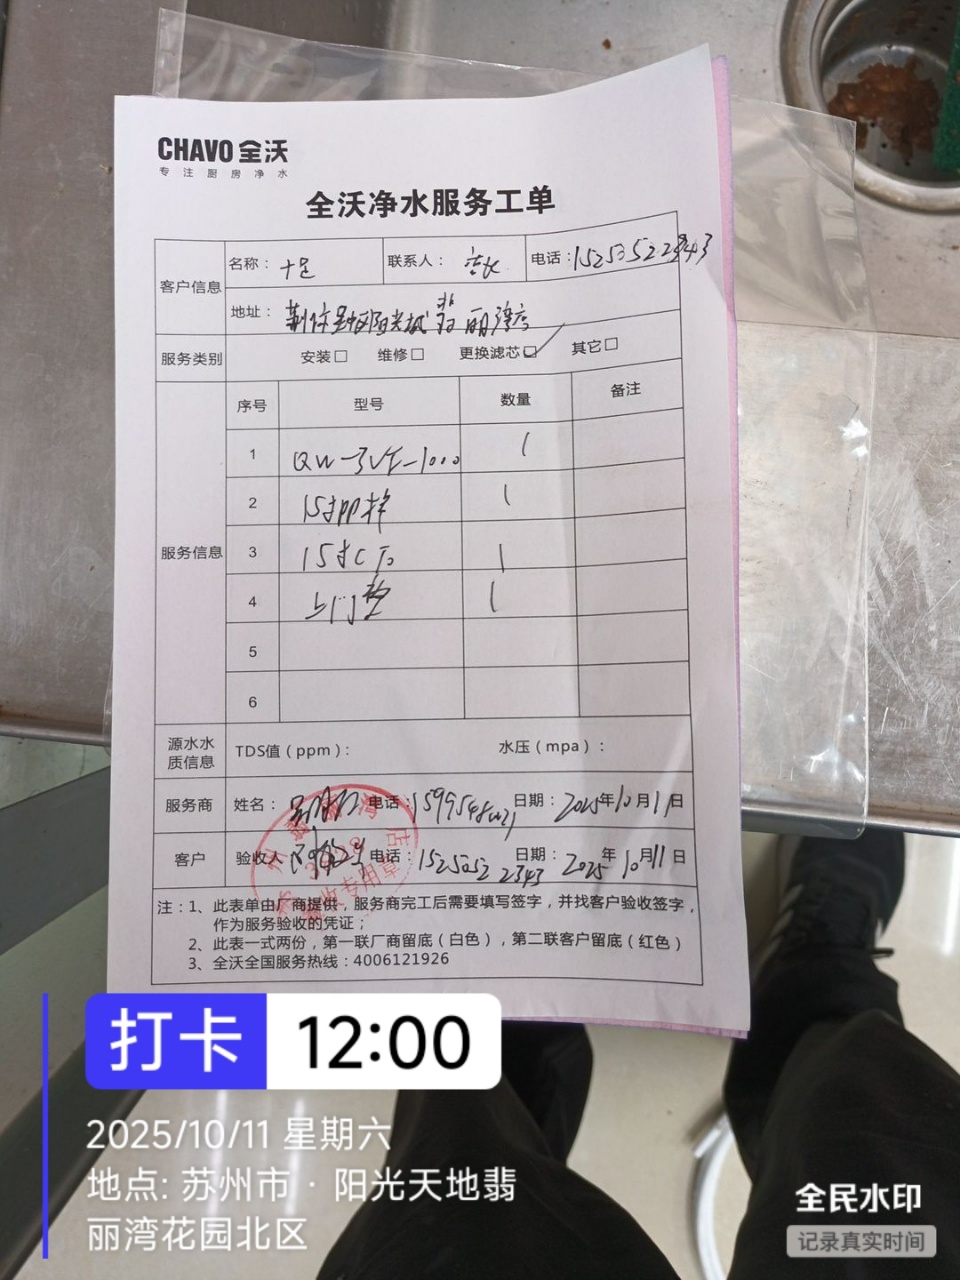 CHAVO 全沃
专注厨房净水
全沃净水服务工单
客户信息
名称： 十足 联系人： 店长 电话：
地址： 阳光城翡丽湾店
服务类别 安装□ 维修□ 更换滤芯□✓ 其它□
服务信息
序号 型号 数量 备注
1 1
2 15寸PP棉 1
3 15寸CTO 1
4 上门费 1
5
6
源水水质信息 TDS值（ppm）： 水压（mpa）：
服务商 姓名： 电话： 日期：2025年10月11日
客户 验收人 电话： 日期：2025年10月11日
注：1、此表单由厂商提供，服务商完工后需要填写签字，并找客户验收签字，
作为服务验收的凭证；
2、此表一式两份，第一联厂商留底（白色），第二联客户留底（红色）
3、全沃全国服务热线：4006121926
打卡 12:00
2025/10/11 星期六
地点: 苏州市 · 阳光天地翡
丽湾花园北区
全民水印
记录真实时间